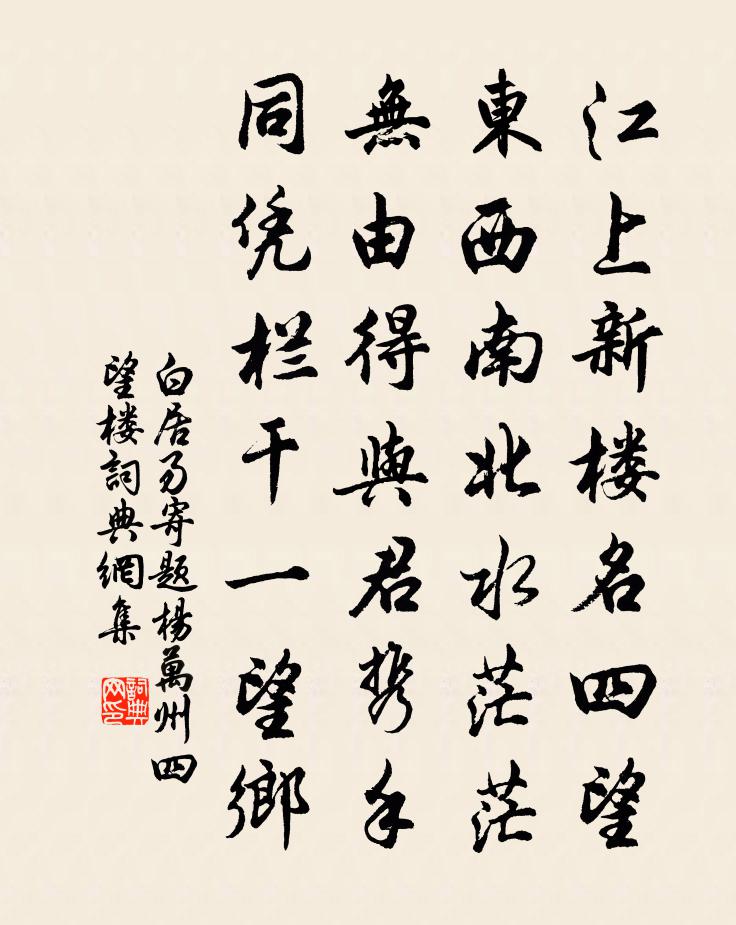 江上新楼名四望
東西南北水茫茫
無由得與君携手
同凭栏干一望鄉
白居易寄题楊萬州四
望楼詞典網集
詞典网印